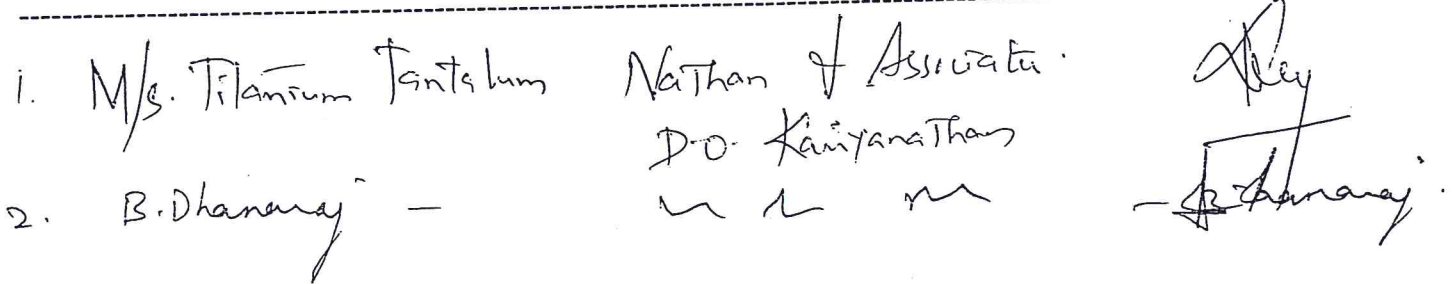 1. M/s. Titanium Tantalum Nathan & Associate.
D.O. Kariyanathan
2. B. Dhanaraj - " " " - B Dhanaraj.